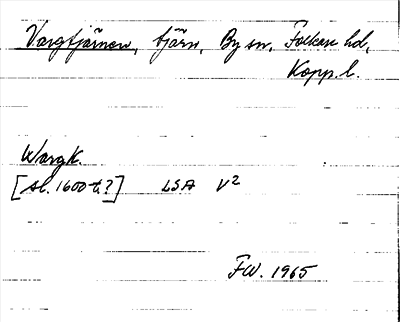 Vargtjärnen, tjärn, By sn, Folkare hd,
Kopp. l.
Wargk.
[sl. 1600-t.?] LSA V2
FW. 1965